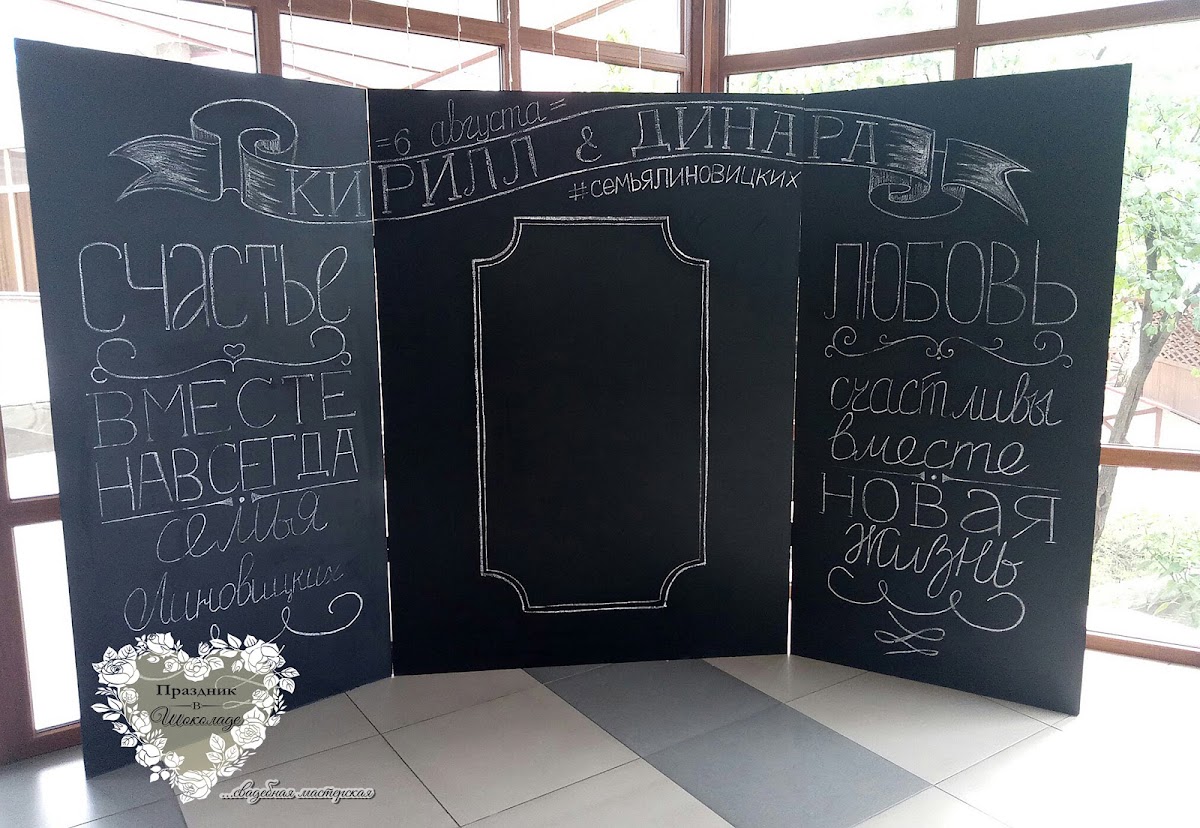 =6 августа=
КИРИЛЛ & ДИНАРА
#СЕМЬЯЛИНОВИЦКИХ
СЧАСТЬЕ
ВМЕСТЕ
НАВСЕГДА
семья
Линовицких
ЛЮБОВЬ
счастливы
вместе
НОВАЯ
жизнь
Праздник
в
Шоколаде
...свадебная мастерская